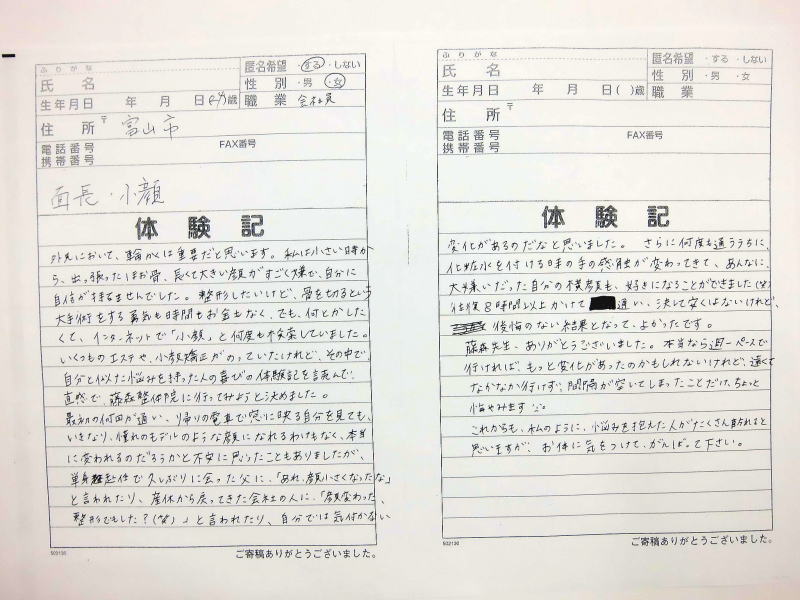 ふりがな
氏 名
匿名希望 ・する ・しない
性 別 ・男 ・女
生年月日 年 月 日( 歳
職 業 会社員
住 所 〒 富山市
電話番号
携帯番号
FAX番号
面長・小顔
体験記
外見において、輪かくは重要だと思います。私は小さい時か
ら、出っ張ったほお骨、長くて大きい顔がすごく嫌で、自分に
自信が持てませんでした。整形したいけど、骨を切るという
大手術をする勇気も時間もお金もなく、でも、何とかした
くて、インターネットで「小顔」と何度も検索していました。
いくつものエステや、小顔矯正がのっていたけれど、その中で
自分と似た悩みを持った人の喜びの体験記を読んで、
直感で、藤森整体院に行ってみようと決めました。
最初の何回か通い、帰りの電車で窓に映る自分を見ても、
いきなり、憧れのモデルのような顔になれるわけもなく、本当
に変われるのだろうかと不安に思ったこともありましたが、
単身赴任で久しぶりに会った父に、「あれ、顔小さくなったな」
と言われたり、産休から戻ってきた会社の人に、「顔変わった、
整形でもした?(笑)」と言われたり、自分では気付かない
502130
ご寄稿ありがとうございました。
ふりがな
氏 名
匿名希望 ・する ・しない
性 別 ・男 ・女
生年月日 年 月 日( )歳
職 業
住 所 〒
電話番号
携帯番号
FAX番号
体験記
変化があるのだなと思いました。さらに何度も通ううちに、
化粧水を付ける時の手の感触が変わってきて、あんなに、
大嫌いだった自分の横顔も、好きになることができました(笑)
往復8時間以上かけて 通い、決して安くはないけれど、
後悔のない結果となって、よかったです。
藤森先生、ありがとうございました。本当なら週一ペースで
行ければ、もっと変化があったのかもしれないけれど、遠くて
なかなか行けず、間隔が空いてしまったことだけ、ちょっと
悔やみます
これからも、私のように、悩みを抱えた人がたくさん訪れると
思いますが、お体に気をつけて、がんばって下さい。
502130
ご寄稿ありがとうございました。